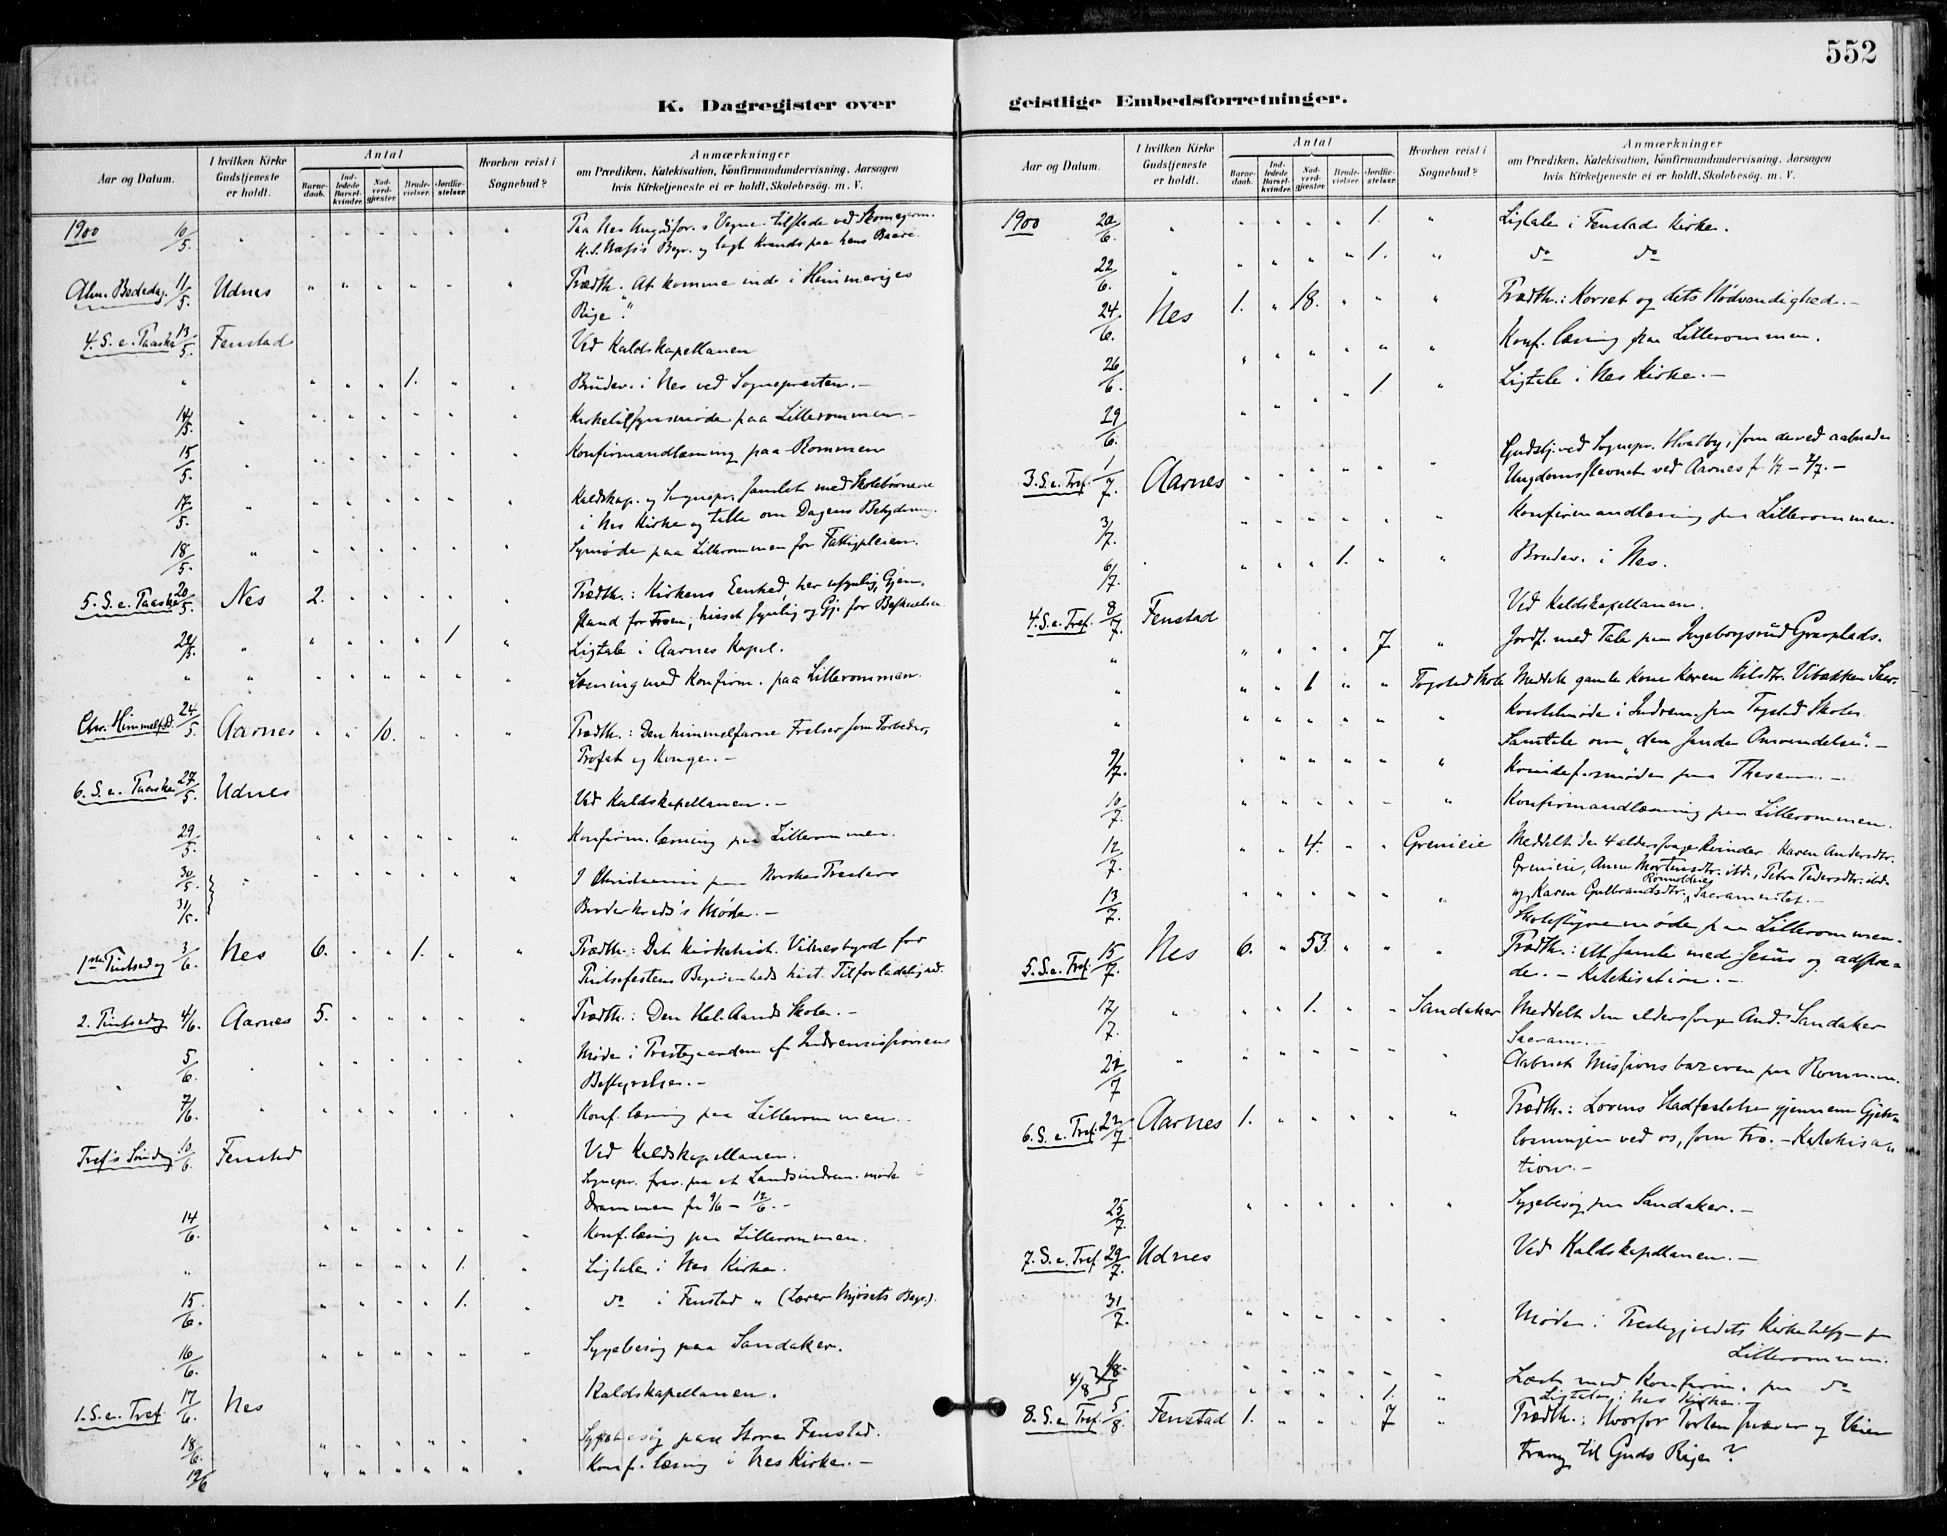 552
K. Dagregister over
geistlige Embedsforretninger.
Aar og Datum.
I hvilken Kirke Gudstjeneste er holdt.
Antal
Barne-daab.
Ind-ledede Barsel-kvinder.
Nad-verd-gjæster.
Brude-vielser.
Jordfæ-stelser.
Hvorhen reist i Sognebud?
Anmærkninger
om Prædiken, Katekisation, Konfirmandundervisning, Aarsagen
hvis Kirketjeneste ei er holdt, Skolebesøg. m. V.
1900 10/5 " " " " " " " Paa Nes Ungdfor.s Vegne tilstede ved
Begr. og lagt Krands paa hans Baare.
Alm. Bededag 11/5. Udnes " " " " " " Prædk. At komme inds i Himmeriges
Rige."
4. S. e. Paaske 13/5. Fenstad Ved Kaldskapellanen
" " " " 1. " " Brudev. i Nes ved Sognepresten.-
14/5. " " " " " " " Kirketilsynsmøde paa Lillerommen.-
15/5. " " " " " " " Konfirmandlæsning paa Rommen
17/5. " " " " " " " Kaldskap. og Sognepr. samlet med Skolebørnene
i Nes Kirke og talte om Dagens Betydning.
18/5. " " " " " " " Symøde paa Lillerommen for Fattigpleien.
5. S. e. Paaske 20/5. Nes 2. " " " " " Prædk.: Kirkens Eenhed, her usynlig, Gjen-
stand for Troen; hisset synlig og Gj. for Beskuelsen
22/5. " " " " " 1 " Ligtale i Aarnes Kapel.
" " " " " " " " Læsning med Konfirm. paa Lillerommen.
Chr. Himmelf.d. 24/5. Aarnes " " 10. " " " Prædk.: Den himmelfarne Frelser som Forbeder,
Profet og Konge.-
6. S. e. Paaske 27/5. Udnes Ved Kaldskapellanen.-
29/5. " " " " " " Konfirm.læsning paa Lillerommen.
30/5. " " " " " " " I Christiania paa Norske Presters
31/5. Broderkreds's Møde.-
1ste Pintsedag 3/6. Nes 6. " " 1. " " Prædk.: Det kirkehist. Vidnesbyrd for
Pintsefestens Begivenheds hist. Tilforladelighed.
2. Pintsedag 4/6. Aarnes 5. " " " " " Prædk.: Den Hel. Aands Skole.-
5/6. " " " " " " " Møde i Prestegaarden af Indremissionens
Bestyrelse.-
7/6. " " " " " " " Konf.læsning paa Lillerommen.
Tref's Søndag 10/6. Fenstad Ved Kaldskapellanen.
Sognepr. frav. paa et Landsindrem.møde i
Drammen fr 9/6 - 12/6.-
14/6. " " " " " " Konf.læsning paa Lillerommen.
" " " " " 1. " Ligtale i Nes Kirke.
15/6. " " " " 1. " do i Fenstad " (Lærer Mjøsets Begr.).
16/6. " " " " " " Sygebesøg paa Sandaker.
1. S. e. Tref. 17/6. Nes Kaldskapellanen.
18/6. " " " " " " Sygebesøg paa Store Fenstad.
19/6 " " " " " " Konf.læsning i Nes Kirke.-
Aar og Datum.
I hvilken Kirke Gudstjeneste er holdt.
Antal
Barne-daab.
Ind-ledede Barsel-kvinder.
Nad-verd-gjæster.
Brude-vielser.
Jordfæ-stelser.
Hvorhen reist i Sognebud?
Anmærkninger
om Prædiken, Katekisation, Konfirmandundervisning, Aarsagen
hvis Kirketjeneste ei er holdt, Skolebesøg. m. V.
1900 20/6. " " " " " 1. " Ligtale i Fenstad Kirke.
22/6. " " " " " 1. " do do
24/6. Nes 1. " 18. " " " Prædk.: Korset og dets Nødvendighed.-
26/6. " " " " " " Konf.læsning paa Lillerommen.
29/6. " " " " 1 " Ligtale i Nes Kirke.-
3. S. e. Tref. 1/7. Aarnes " " " " " " Gudstj. ved Sognepr. Hvalby, som derved aabnede
Ungdomsstevnet ved Aarnes fr 1/7 - 2/7.-
3/7. " " " " " " Konfirmandlæsning paa Lillerommen.
6/7. " " " " 1. " " Brudev. i Nes.
4. S. e. Tref. 8/7. Fenstad Ved Kaldskapellanen.
" " " " " 7 " Jordf. med Tale paa Ingeborgsrud Gravplads.
" " " 1 " " Togstad Skole Meddelt gamle Kone Karen Nilsdtr. Vibakken Sacr.
" " " " " " " Kvartalmøde i Indrem. paa Togstad Skole.
Samtale om "den sande Omvendelse".-
9/7. " " " " " " Kvindeforsmøde paa Thesen.-
10/7. " " " " " " Konfirmandlæsning paa Lillerommen.
12/7. " " 4. " " Grenieie Meddelt de 4 aldersvage Kvinder Karen Andersdtr.
Grenieie, Anne Mortensdtr. ibd., Petra Pedersdtr. ibd.
og Karen Gulbrandsdtr. Sacramentet.-
13/7. " " " " " " Skolestyremøde paa Lillerommen.
5. S. e. Tref. 15/7. Nes 6. " 53. " " " Prædk.: At samle med Jesus og adspre-
de.- Katekisation.-
17/7. " " " 1. " " Sandaker Meddelt den aldersvage And. Sandaker
Sacram.-
" " " " " " " Aabnet Missionsbazaren paa Rommen.
6. S. e. Tref. 22/7. Aarnes 1. " " " " " Prædk.: Lovens Stadfæstelse gjennem Gjen-
løsningen ved os, som tro.- Katekisa-
tion.-
25/7. " " " " " " Sygebesøg paa Sandaker.-
7. S. e. Tref 29/7. Udnes Ved Kaldskapellanen.-
31/7. " " " " " " Møde i Prestegjældets Kirketilsyn paa
Lillerommen.
" " " " " " Læst med Konfirm. paa do
4/8 " " " " 1. " Ligtale i Nes Kirke.-
8. S. e. Tref. 5/8. Fenstad 1. " " " 7 " Prædk.: Hvorfor Porten snæver og Veien
trang til Guds Rige?